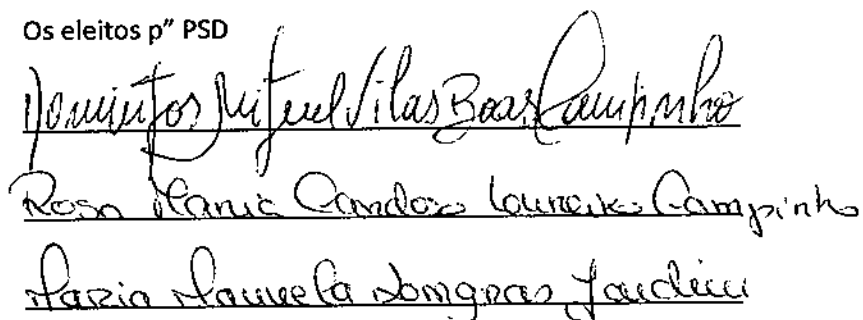 Os eleitos p” PSD
Domingos Miguel Vilas Boas Campinho
Rosa Maria Cardoso Loureiro Campinho
Maria Manuela Jardim